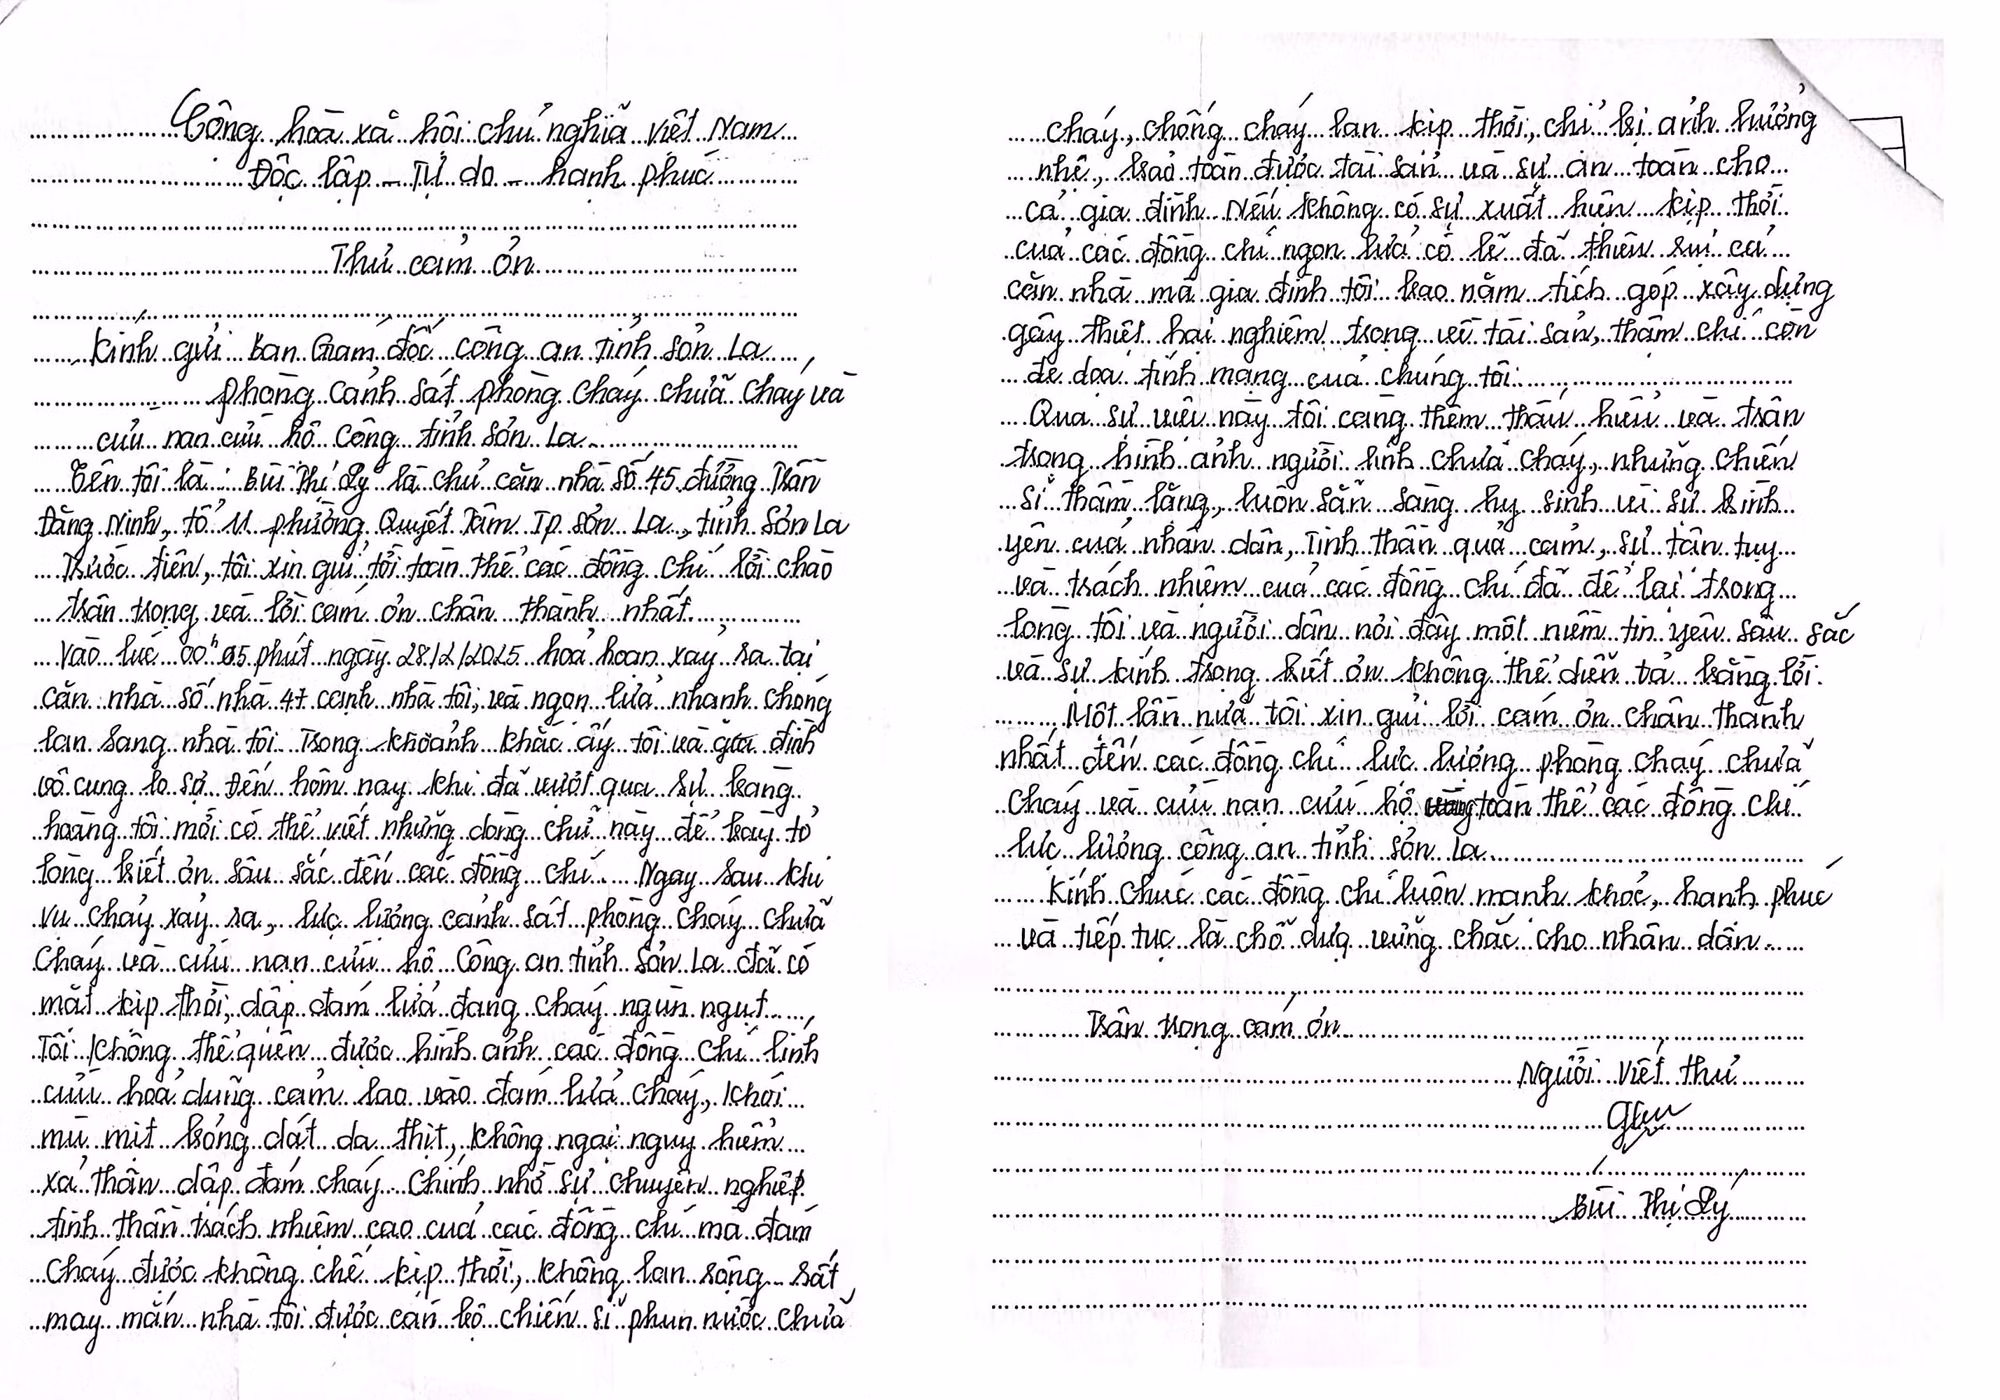 Cộng hoà xã hội chủ nghĩa Việt Nam
Độc lập - Tự do - hạnh phúc
Thư cảm ơn
Kính gửi Ban Giám đốc công an tỉnh Sơn La
phòng cảnh sát phòng cháy chữa cháy và
cứu nạn cứu hộ Công tỉnh Sơn La.
Tên tôi là: Bùi Thị Lý là chủ căn nhà số 45 đường Trần
Đăng Ninh, tổ 11 phường Quyết Tâm Tp Sơn La, tỉnh Sơn La
Trước tiên, tôi xin gửi tới toàn thể các đồng chí lời chào
trân trọng và lời cảm ơn chân thành nhất.
Vào lúc 00h 05 phút ngày 28/2/2025 hoả hoạn xảy ra tại
căn nhà số nhà 47 cạnh nhà tôi, và ngọn lửa nhanh chóng
lan sang nhà tôi Trong khoảnh khắc ấy tôi và gia đình
vô cùng lo sợ Đến hôm nay khi đã vượt qua sự bàng
hoàng tôi mới có thể viết những dòng chữ này để bày tỏ
lòng biết ơn sâu sắc đến các đồng chí. Ngay sau khi
vụ cháy xảy ra, lực lượng cảnh sát phòng cháy chữa
cháy và cứu nạn cứu hộ Công an tỉnh Sơn La đã có
mặt kịp thời, dập đám lửa đang cháy ngùn ngụt,
Tôi không thể quên được hình ảnh các đồng chí lính
cứu hoả dũng cảm lao vào đám lửa cháy, khói
mù mịt bỏng dát da thịt, không ngại nguy hiểm
xả thân dập đám cháy Chính nhờ sự chuyên nghiệp
tinh thần trách nhiệm cao của các đồng chí mà đám
cháy được khống chế kịp thời, không lan rộng rất
may mắn nhà tôi được cán bộ chiến sĩ phun nước chữa
cháy, chống cháy lan kịp thời, chỉ bị ảnh hưởng
nhẹ, bảo toàn được tài sản và sự an toàn cho
cả gia đình Nếu không có sự xuất hiện kịp thời
của các đồng chí ngọn lửa có lẽ đã thiêu rụi cả
căn nhà mà gia đình tôi bao năm tích góp xây dựng
gây thiệt hại nghiêm trọng về tài sản, thậm chí còn
đe dọa tính mạng của chúng tôi.
Qua sự việc này tôi càng thêm thấu hiểu và trân
trọng hình ảnh người lính chữa cháy, những chiến
sĩ thầm lặng, luôn sẵn sàng hy sinh vì sự bình
yên của nhân dân, Tinh thần quả cảm, sự tận tụy
và trách nhiệm của các đồng chí đã để lại trong
lòng tôi và người dân nơi đây một niềm tin yêu sâu sắc
và sự kính trọng biết ơn không thể diễn tả bằng lời.
Một lần nữa tôi xin gửi lời cảm ơn chân thành
nhất đến các đồng chí lực lượng phòng cháy chữa
cháy và cứu nạn cứu hộ toàn thể các đồng chí
lực lượng công an tỉnh Sơn La
Kính chúc các đồng chí luôn mạnh khỏe, hạnh phúc
và tiếp tục là chỗ dựa vững chắc cho nhân dân.
Trân trọng cảm ơn
Người viết thư
Bùi Thị Lý